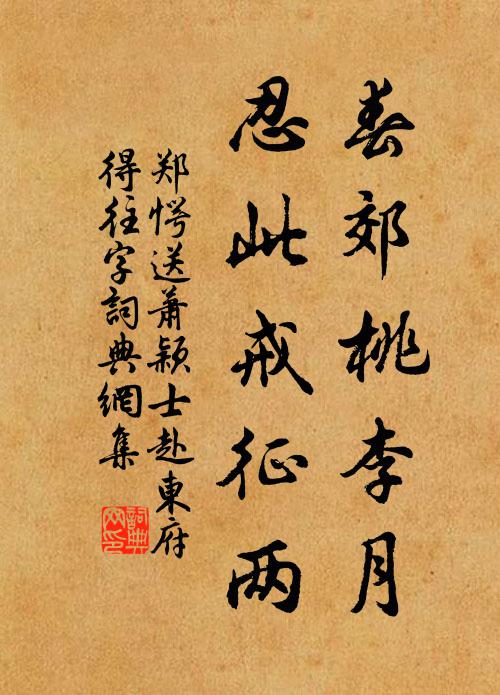 春郊桃李月
忍此戒征两
郑愕送萧颖士赴東府
得往字詞典網集
詞典